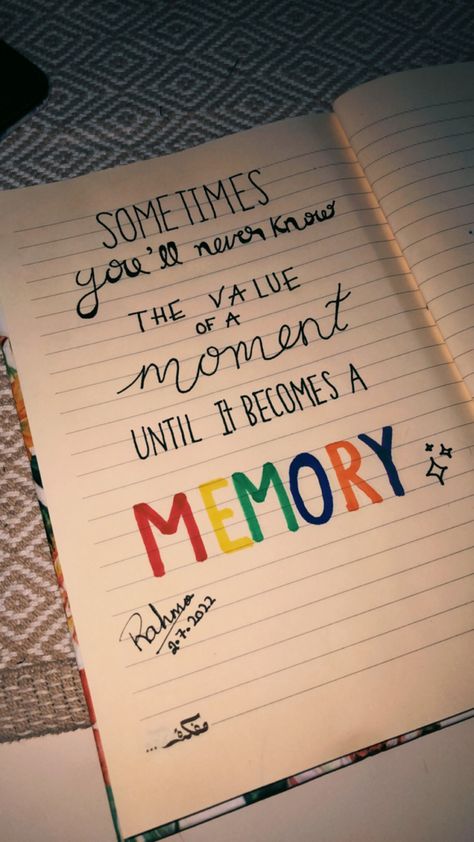 SOMETIMES
you'll never know
THE VALUE
OF A
moment
UNTIL It BECOMES A
MEMORY
Rahma
2.7.2022
مفكرة ...